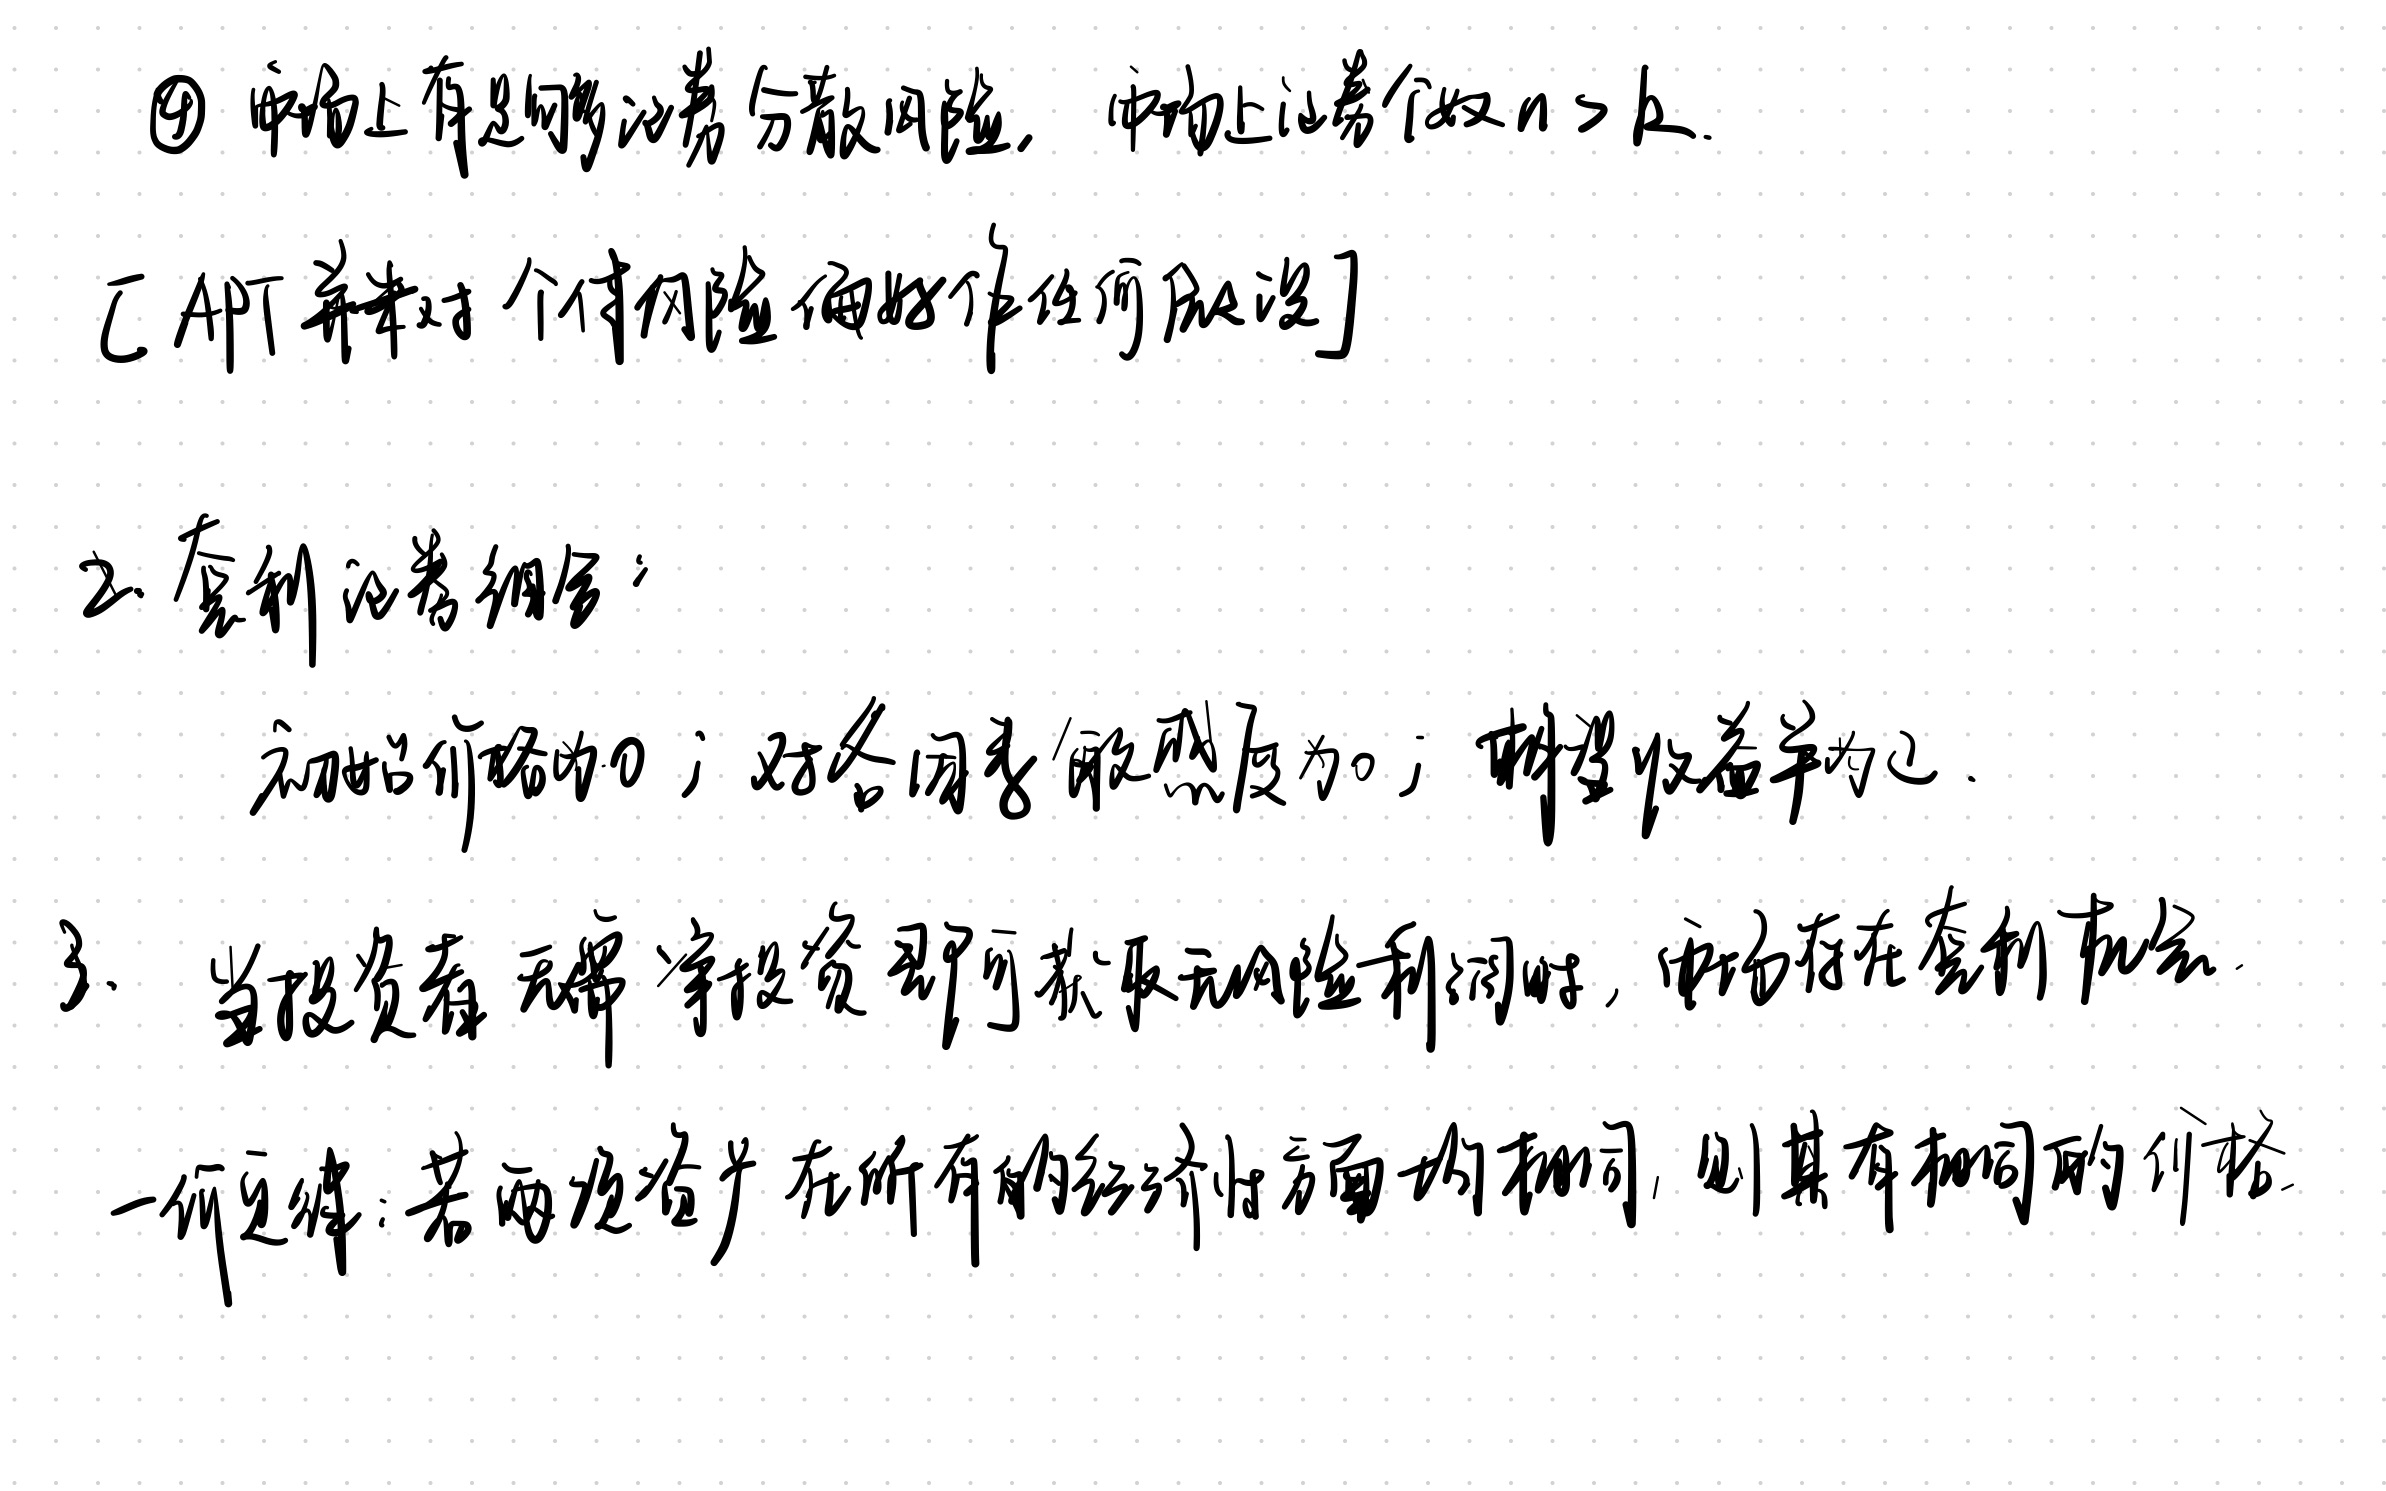 ④ 市场上有足够的证券分散风险，市场上证券个数 n > k.
[APT 并未对个体风险倾向做任何假设]
2. 套利证券组合：
初始价格为0；对各因素敏感度为0；期望收益率为正.
3. 当投资者不需要投资即可获取无风险利润时，市场存在套利机会.
一价定律：若两项资产在所有的经济方面均相同，则其有相同的价格.